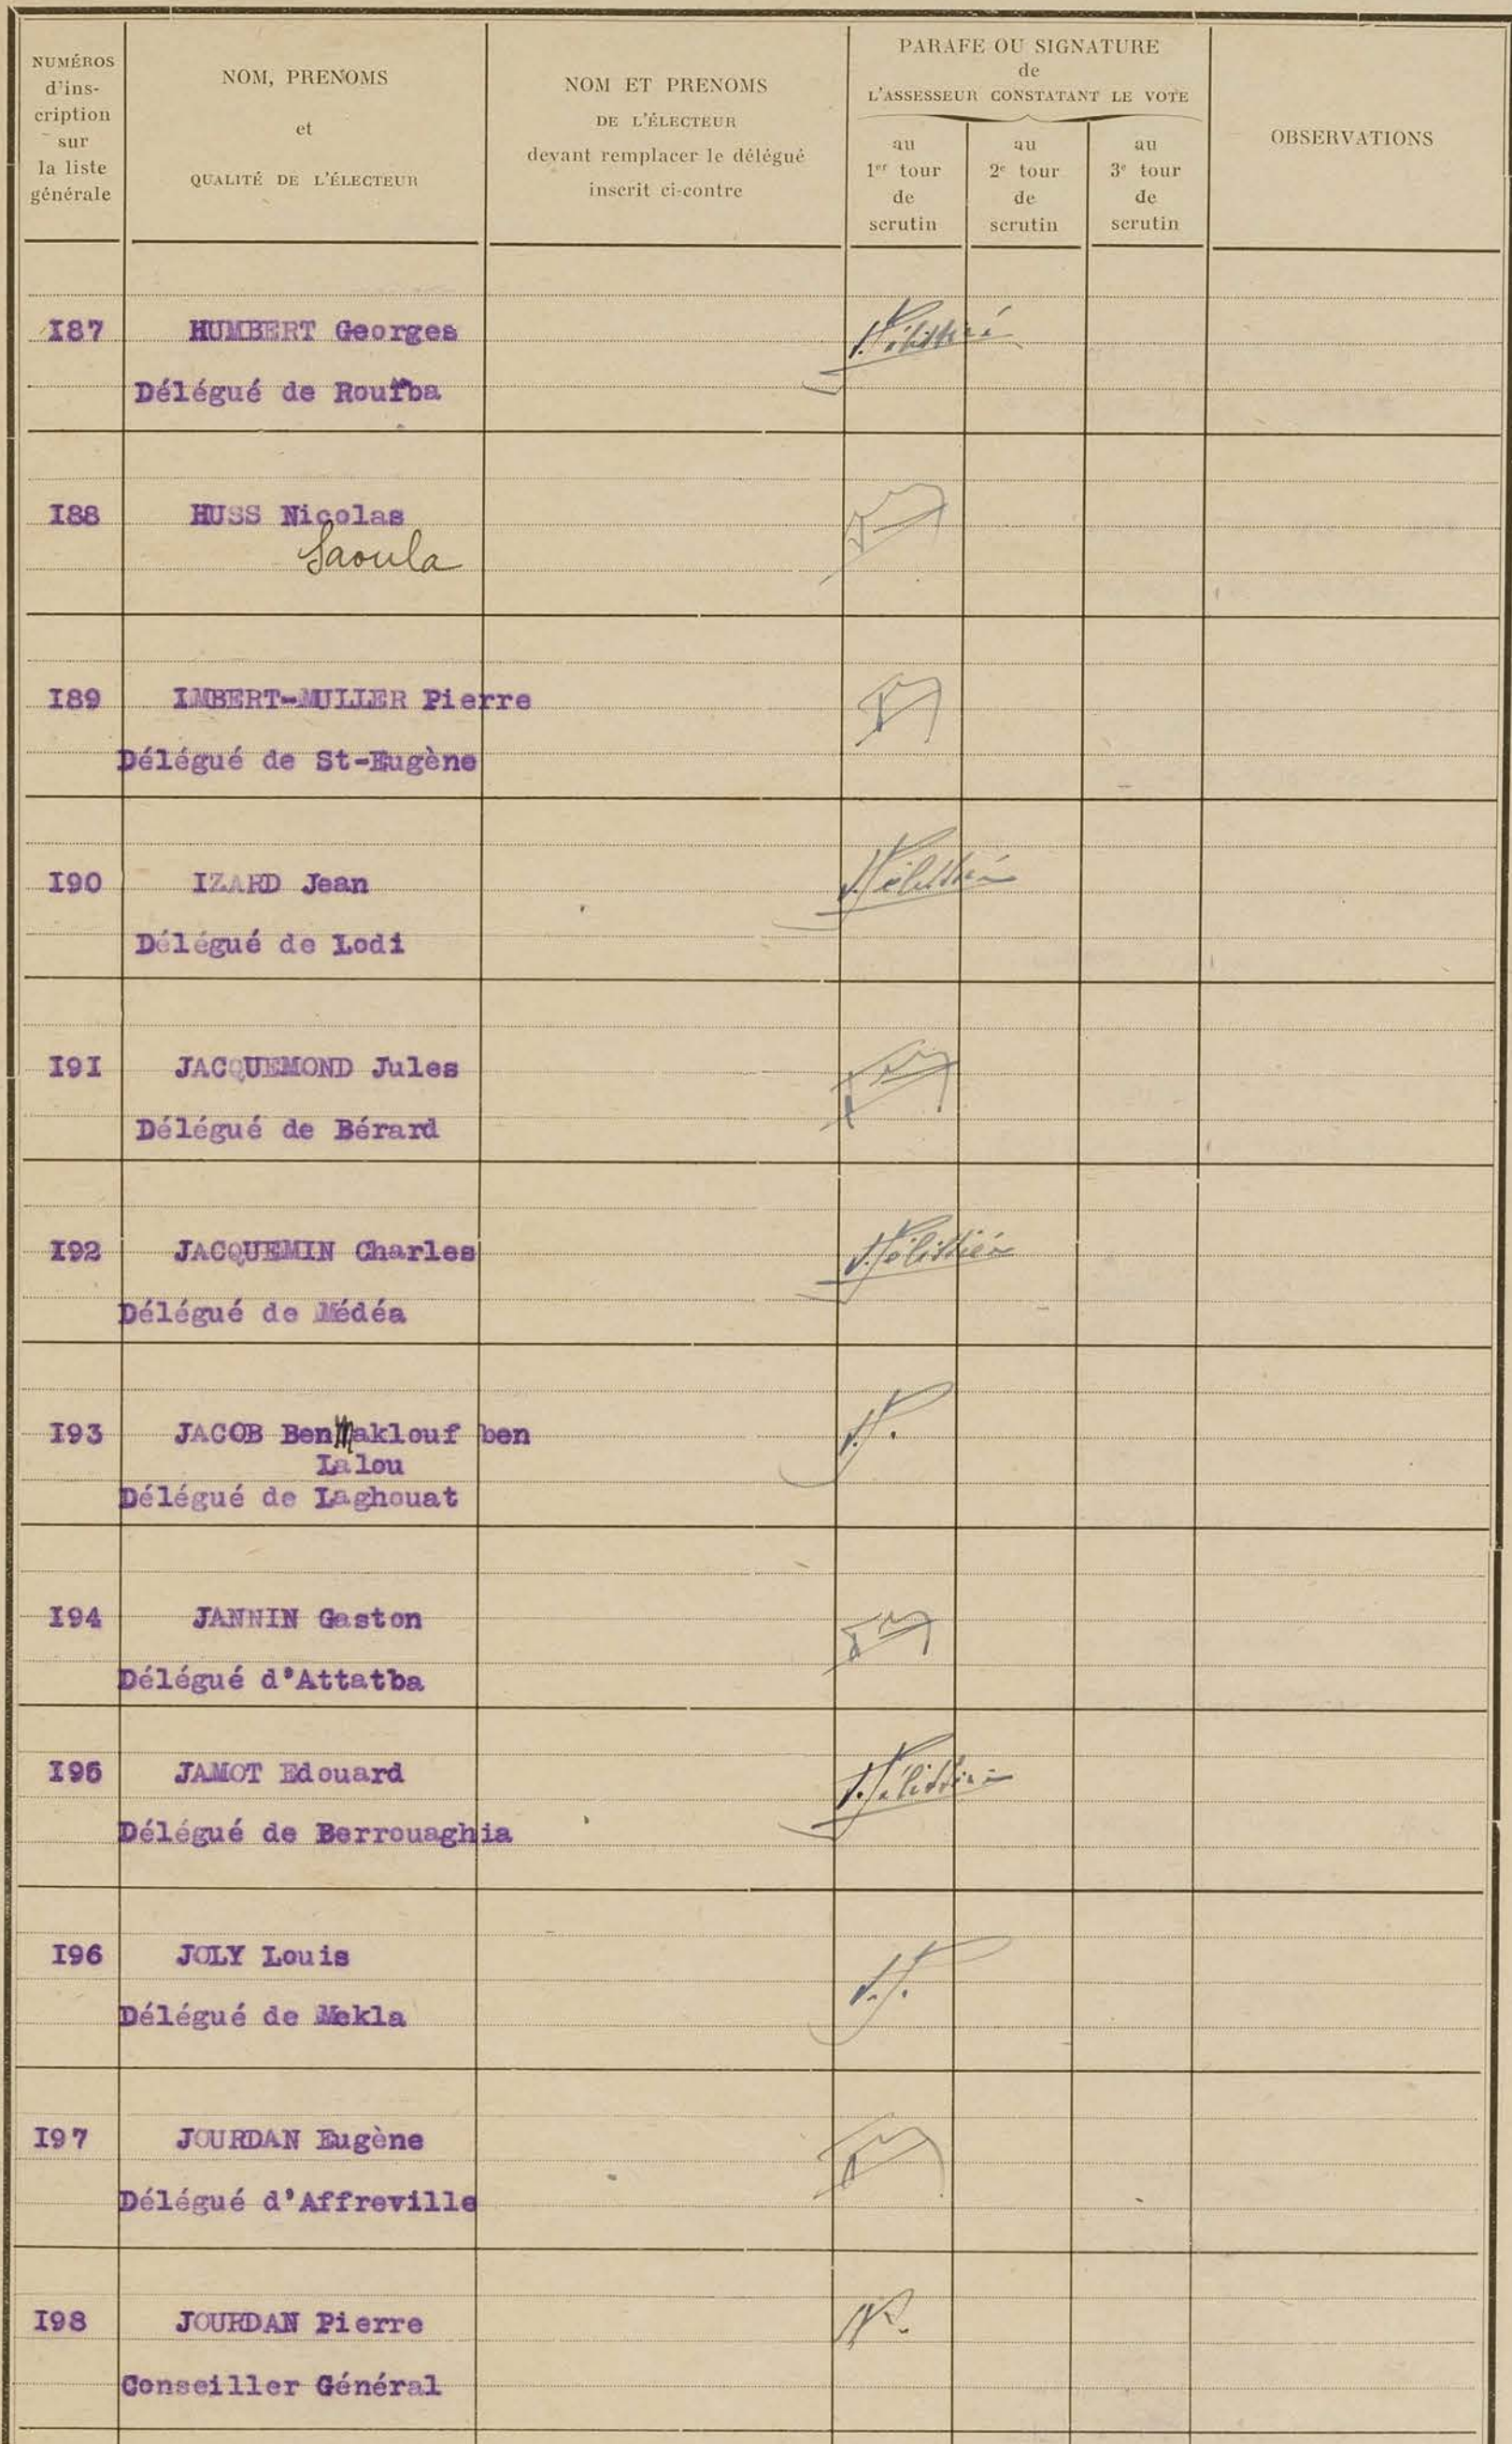 NUMÉROS
d'ins-
cription
sur
la liste
générale
NOM, PRENOMS
et
QUALITÉ DE L'ÉLECTEUR
NOM ET PRENOMS
DE L'ÉLECTEUR
devant remplacer le délégué
inscrit ci-contre
PARAFE OU SIGNATURE
de
L'ASSESSEUR CONSTATANT LE VOTE
au
1er tour
de
scrutin
au
2e tour
de
scrutin
au
3e tour
de
scrutin
OBSERVATIONS
I87 HUMBERT Georges
Délégué de Rouïba
I88 HUSS Nicolas
Saoula
I89 IMBERT-MULLER Pierre
Délégué de St-Eugène
I90 IZARD Jean
Délégué de Lodi
I9I JACQUEMOND Jules
Délégué de Bérard
I92 JACQUEMIN Charles
Délégué de Médéa
I93 JACOB Ben Maklouf ben
Lalou
Délégué de Laghouat
I94 JANNIN Gaston
Délégué d'Attatba
I95 JAMOT Edouard
Délégué de Berrouaghia
I96 JOLY Louis
Délégué de Mekla
I97 JOURDAN Eugène
Délégué d'Affreville
I98 JOURDAN Pierre
Conseiller Général